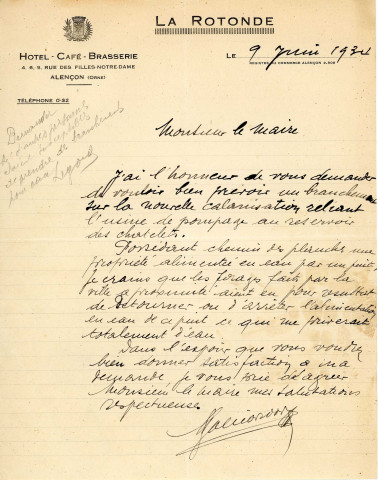 LA ROTONDE
HOTEL - CAFÉ - BRASSERIE
4, 6, 8, RUE DES FILLES-NOTRE-DAME
ALENÇON (ORNE)
TÉLÉPHONE 0-32
LE 9 Juin 1934
REGISTRE DU COMMERCE ALENÇON
Demander
Monsieur le Maire
J'ai l'honneur de vous demander
de vouloir bien prévoir un branchement
sur la nouvelle canalisation reliant
l'usine de pompage au reservoir
des chatelets.
Possedant chemin des planches une
propriété alimentée en eau par un puits,
je crains que les forages faits par la
ville a proximité aient en pour resultat
de detourner ou d'arrêter l'alimentation
en eau de ce puit ce qui me priverait
totalement d'eau.
Dans l'espoir que vous voudrez
bien donner satisfaction à ma
demande je vous prie d'agréer
Monsieur le Maire mes salutations
respectueuses